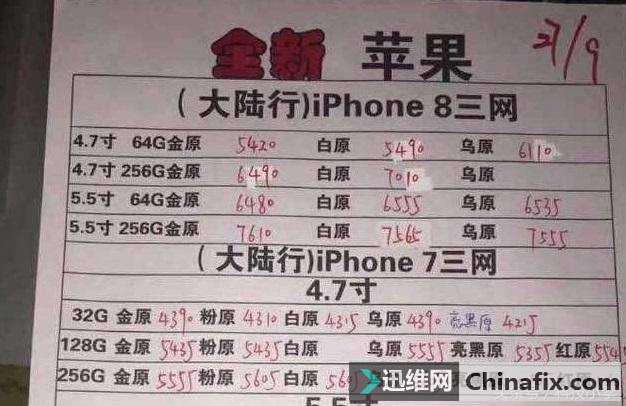 全新 苹果 27/9
(大陆行)iPhone 8三网
4.7寸 64G金原 5420 白原 5490 乌原 6110
4.7寸 256G金原 6490 白原 7010 乌原
5.5寸 64G金原 6480 白原 6555 乌原 6535
5.5寸 256G金原 7610 白原 7565 乌原 7555
(大陆行)iPhone 7三网
4.7寸
32G 金原 4390 粉原 4310 白原 4315 乌原 4390 亮黑原 4215
128G 金原 5435 粉原 5435 白原 乌原 5555 亮黑原 5355 红原
256G 金原 5555 粉原 5605 白原
迅维网 Chinafix.com